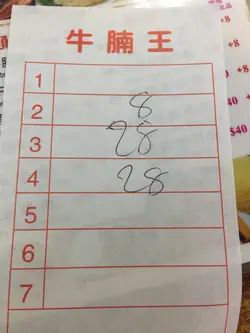 牛腩王
1
2 8
3 28
4 28
5
6
7
+8
+8
+8
$40
+8